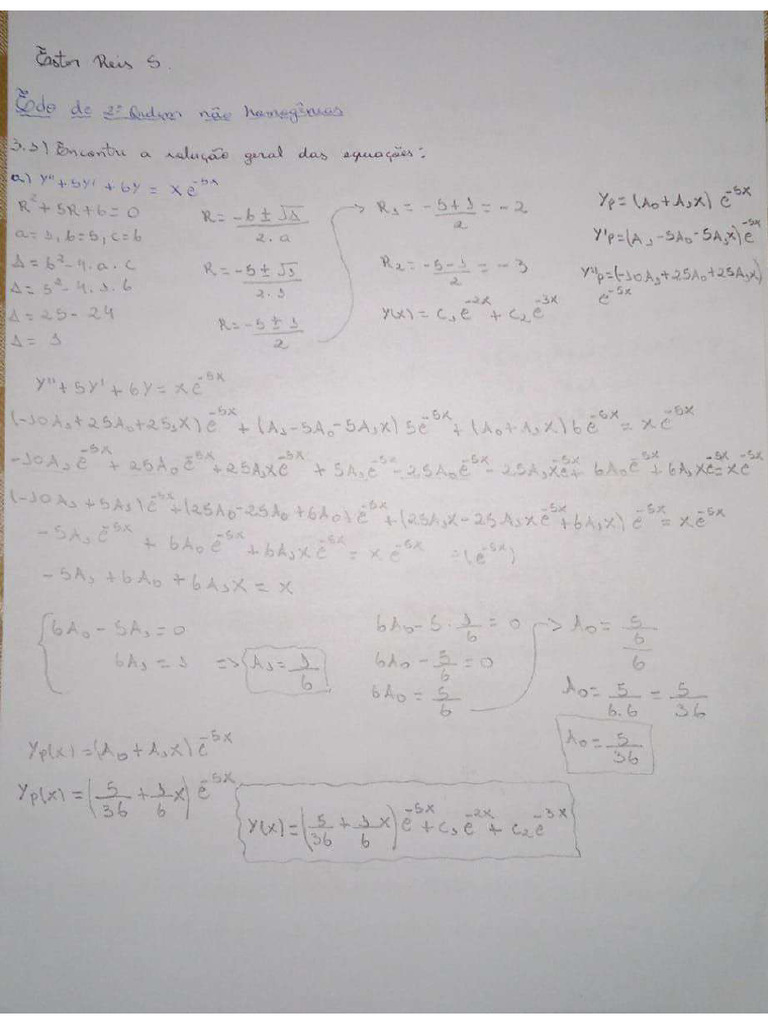 Ester Reis S.
Edo de 2ª Ordem não homogêneas
3.1) Encontre a solução geral das equações:
a) Y'' + 5Y' + 6Y = x e^{-5x}
R² + 5R + 6 = 0
a = 1, b = 5, c = 6
Δ = b² - 4.a.c
Δ = 5² - 4.1.6
Δ = 25 - 24
Δ = 1
R = -b ± √Δ / 2.a
R = -5 ± √1 / 2.1
R = -5 ± 1 / 2
R₁ = -5 + 1 / 2 = -2
R₂ = -5 - 1 / 2 = -3
Y(x) = C₁e^{-2x} + C₂e^{-3x}
Yp = (A₀ + A₁x) e^{-5x}
Y'p = (A₁ - 5A₀ - 5A₁x) e^{-5x}
Y''p = (-10A₁ + 25A₀ + 25A₁x)
e^{-5x}
Y'' + 5Y' + 6Y = x e^{-5x}
(-10A₁ + 25A₀ + 25₁x) e^{-5x} + (A₁ - 5A₀ - 5A₁x) 5e^{-5x} + (A₀ + A₁x) 6e^{-5x} = x e^{-5x}
-10A₁e^{-5x} + 25A₀e^{-5x} + 25A₁xe^{-5x} + 5A₁e^{-5x} - 25A₀e^{-5x} - 25A₁xe^{-5x} + 6A₀e^{-5x} + 6A₁xe^{-5x} = xe^{-5x}
(-10A₁ + 5A₁) e^{-5x} + (25A₀ - 25A₀ + 6A₀) e^{-5x} + (25A₁x - 25A₁xe^{-5x} + 6A₁x) e^{-5x} = xe^{-5x}
-5A₁e^{-5x} + 6A₀e^{-5x} + 6A₁xe^{-5x} = xe^{-5x} ÷(e^{-5x})
-5A₁ + 6A₀ + 6A₁x = x
{ 6A₀ - 5A₁ = 0
6A₁ = 1 => A₁ = 1/6
6A₀ - 5 . 1/6 = 0
6A₀ - 5/6 = 0
6A₀ = 5/6
-> A₀ = 5/6 / 6
A₀ = 5/6.6 = 5/36
A₀ = 5/36
Yp(x) = (A₀ + A₁x) e^{-5x}
Yp(x) = (5/36 + 1/6 x) e^{-5x}
Y(x) = (5/36 + 1/6 x) e^{-5x} + C₁e^{-2x} + C₂e^{-3x}